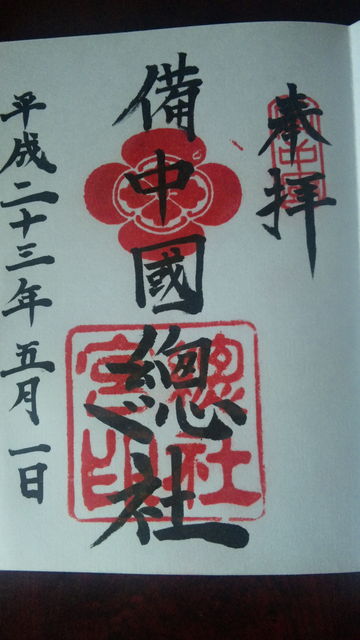 奉拝
備中國總社
總社宮印
平成二十三年五月一日